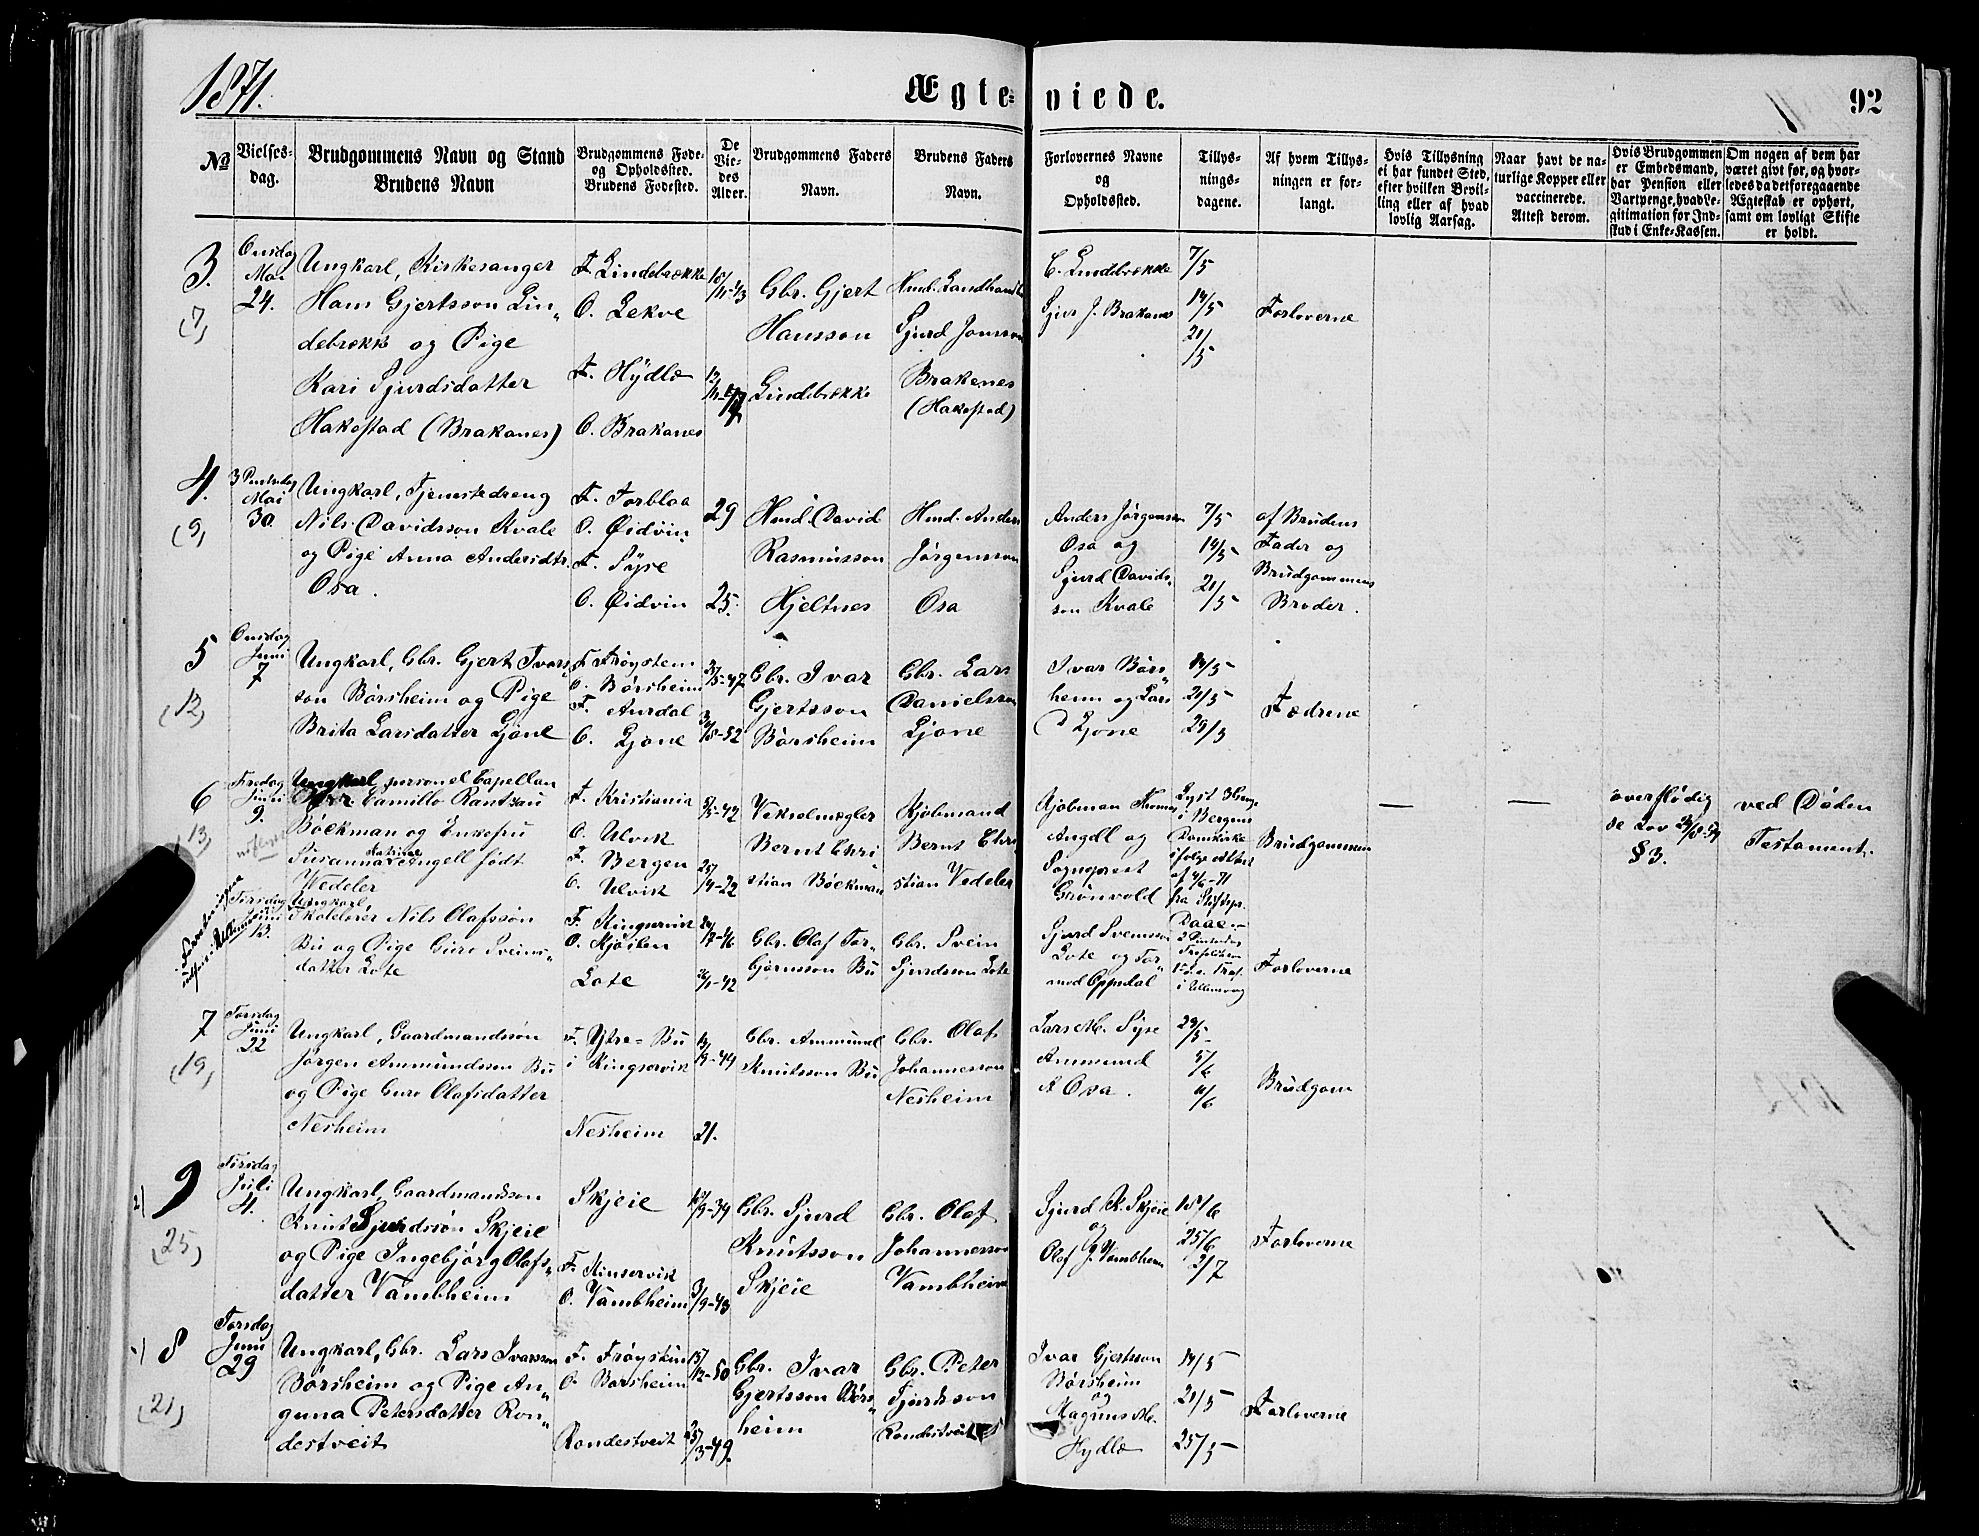 1871.
Ægteviede.
92
No
Vielsesdag.
Brudgommens Navn og Stand
Brudens Navn
Brudgommens Føde- og Opholdssted.
Brudens Fødested.
De Viedes Alder.
Brudgommens Faders Navn.
Brudens Faders Navn.
Forlovernes Navne og Opholdssted.
Tillysningsdagene.
Af hvem Tillysningen er forlangt.
Hvis Tillysning ei har fundet Sted, efter hvilken Bevilling eller af hvad lovlig Aarsag.
Naar havt de naturlige Kopper eller vaccinerede. Attest derom.
Hvis Brudgommen er Embedsmand, har Pension eller Vartpenge, hvad Legitimation for Indskud i Enke-Kassen.
Om nogen af dem har været givt før, og hvorledes da det foregaaende Ægteskab er ophørt, samt om lovligt Skifte er holdt.
3.
(7)
Onsdag
Mai
24.
Ungkarl, Kirkesanger
Hans Gjertsson Lin„
debrække og Pige
Kari Sjurdsdatter
Hakestad (Brakanes)
F. Lindebrække
O. Lekve
F. Hydle
O. Brakanes
Gbr. Gjert
Hansson
Lindebrække
Sjurd Jonsson
Brakenes
(Hakestad)
Lindebrække
Sjur J. Brakanes
7/5
14/5
21/5
Forloverne
4.
(9)
Mai
30.
Ungkarl, Tjenestedreng
Nils Davidsson Kvale
og Pige Anna Andersdtr.
Osa.
F. Torblaa
O. Øidvin
F. Syse
O. Øidvin
29
25.
Hmd. David
Rasmusson
Hjeltnes
Hmd. Anders
Jørgensson
Osa
Anders Jørgensen
Osa og
Sjurd Davids„
son Kvale
7/5
14/5
21/5
af Brudens
Fader og
Brudgommens
Broder.
5
(12)
Onsdag
Juni
7
Ungkarl, Gbr. Gjert Ivars
son Børsheim og Pige
Brita Larsdatter Ljone
F. Frøystein
O. Børsheim
F. Aurdal
O. Ljone
Gbr. Ivar
Gjertsson
Børsheim
Gbr. Lars
Danielsson
Ljone
Ivar Børs„
heim og Lars
D Ljone
14/5
21/5
29/5
Fædrene
6
(13)
Fredag
Juni
9.
Ungkarl, personel Capellan
Camillo Rantzau
Bøckman og Enkefru
Susanna Katrine Angell født
Wedeler
F. Kristiania
O. Ulvik
F. Bergen
O. Ulvik
Vekselmægler
Bernt Chri
stian Bøckman
Kjøbmand
Bernt Chri
stian Vedeler
Kjøbman Thomas
Angell og
Sogneprest
Grønvold
Lyst 3 Gange
i Bergens
Domkirke
ifølge Attest
af 4/6-71
fra Stiftspr.
Daae.
Brudgommen
—
—
overflødig
se Lov
§ 3.
ved Døden
Testament.
Tirsdag
Juni
13.
Ungkarl
Skolelærer Nils Olafssøn
Bu og Pige Guro Sveins„
datter Lote
F. Kingservik
O. Kjøsten
Lote
Gbr. Olaf Tor„
bjørnsson Bu
Gbr. Svein
Sjurdsson Lote
Sjurd Sveinsson
Lote og Tor„
mod Oppedal
i Ullensvang
Forloverne
7
(19)
Torsdag
Juni
22
Ungkarl, Gaardmandssøn
Jørgen Ammundsson Bu
og Pige Guro Olafsdatter
Nesheim
F. Ytre-Bu
i Kingservik
Nesheim
21.
Gbr. Ammund
Knutsson Bu
Gbr. Olaf
Johannesson
Nesheim
Lars M. Syse
Ammund
A Osa.
29/5
5/6
11/6
Brudgom
2)
9
(25)
Tirsdag
Juli
4.
Ungkarl, Gaardmandsson
Knut Sjurdssøn Skjeie
og Pige Ingebjørg Olafs„
datter Vambheim
Skjeie
F. Kinservik
O. Vambheim
3/9-43
Gbr. Sjurd
Knutsson
Skjeie
Gbr. Olaf
Johannesson
Vambheim
Sjurd K. Skjeie
og
Olaf J. Vambheim
18/6
25/6
2/7
Forloverne
8
(21)
Torsdag
Juni
29
Ungkarl, Gbr. Lars Ivarsson
Børsheim og Pige An„
guna Petersdatter Ron„
destveit
F. Frøystein
O. Børsheim
Rondestveit
15/12-50
25/3-49.
Gbr. Ivar
Gjertsson Børs„
heim
Gbr. Peter
Sjurdsson
Rondestveit
Ivar Gjertsson
Børsheim
og
Magnus M.
Hydle
14/5
21/5
25/5
Forloverne